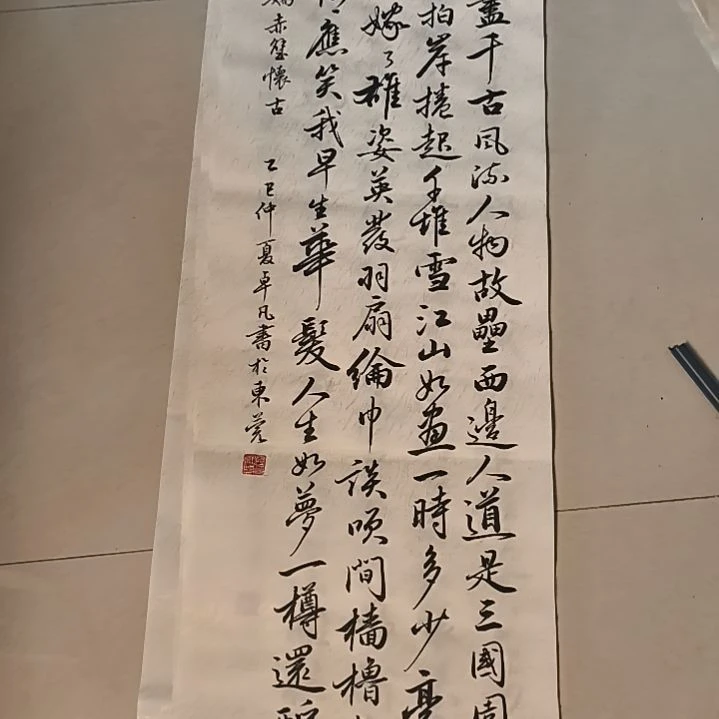 盡千古風流人物故壘西邊人道是三國周
拍岸捲起千堆雪江山如畫一時多少豪
嫁了雄姿英發羽扇綸巾談咲間檣櫓
應笑我早生華髮人生如夢一樽還
赤壁懷古 乙巳仲夏卓凡書於東莞